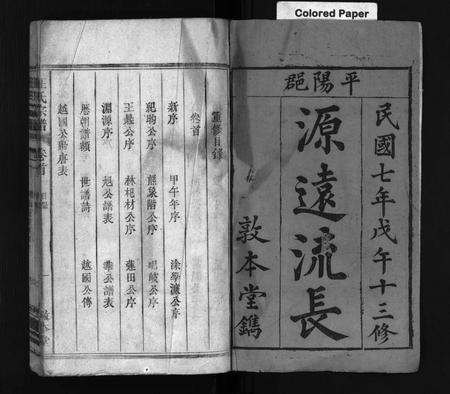 Colored Paper
平陽郡
民國七年戊午十三修
源遠流長
敦本堂鐫
重修目錄
卷首
新序 甲午年序 涂學濂公序
祀昀公序 熊景階公序 峴崚公序
王縣公序 林杞材公序 蓮田公序
淵源序 旭公譜表 華公譜表
歷朝譜類 世譜詩 越國公傳
越國公歸唐表
汪氏宗譜 卷首